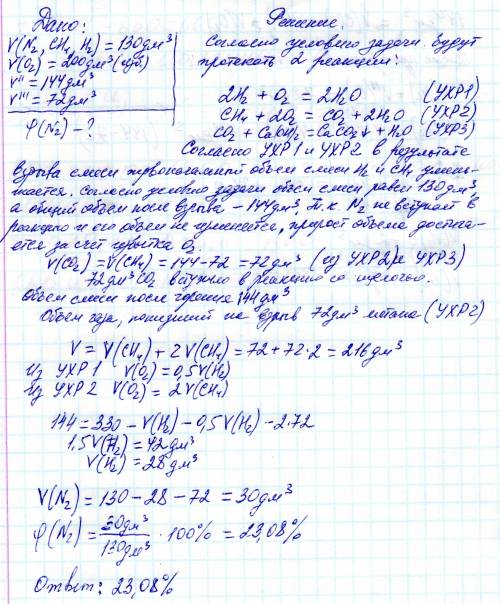 Дано:
V(N₂, CH₄, H₂) = 130дм³
V(O₂) = 200дм³ (изб)
V'' = 144дм³
V''' = 72дм³
φ(N₂) - ?
Решение.
Согласно условию задачи будут
протекать 2 реакции:
2H₂ + O₂ = 2H₂O (УХР1)
CH₄ + 2O₂ = CO₂ + 2H₂O (УХР2)
CO₂ + Ca(OH)₂ = CaCO₃↓ + H₂O (УХР3)
Согласно УХР1 и УХР2 в результате
взрыва смеси первоначальный объем смеси H₂ и CH₄ умень-
шается. Согласно условию задачи объем смеси равен 130дм³,
а общий объем после взрыва - 144дм³. Т.к. N₂ не вступает в
реакцию и его объем не изменяется, прирост объема достига-
ется за счет избытка O₂.
V(CO₂) = V(CH₄) = 144 - 72 = 72дм³ (из УХР2) и УХР3)
72дм³ CO₂ вступило в реакцию со щелочью.
Объем смеси после горения 144дм³
Объем газа, пошедший на взрыв 72дм³ метана (УХР2)
V = V(CH₄) + 2V(CH₄) = 72 + 72·2 = 216дм³
Из УХР1 V(O₂) = 0,5V(H₂)
Из УХР2 V(O₂) = 2V(CH₄)
144 = 330 - V(H₂) - 0,5V(H₂) - 2·72
1,5V(H₂) = 42дм³
V(H₂) = 28дм³
V(N₂) = 130 - 28 - 72 = 30дм³
φ(N₂) = 30дм³/130дм³ · 100% = 23,08%
Ответ: 23,08%